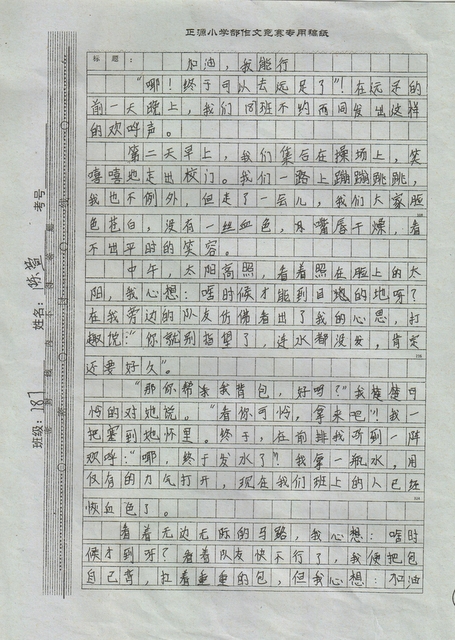 正源小学部作文竞赛专用稿纸
标题：加油，我能行
“哪！终于可以去远足了”！在远足的
前一天晚上，我们同班不约而同发出这样
的欢呼声。
第二天早上，我们集合在操场上，笑
嘻嘻地走出校门。我们一路上蹦蹦跳跳，
我也不例外，但走了一会儿，我们大家脸
色苍白，没有一丝血色，嘴唇干燥，看
不出平时的笑容。
中午，太阳高照，看着照在脸上的太
阳，我心想：啥时候才能到目的地呀？
在我旁边的队友仿佛看出了我的心思，打
趣说：“你就别指望了，连水都没发，肯定
还要好久”。
“那你帮我背包，好吗？”我楚楚可
怜的对她说。“看你可怜，拿来吧！”我一
把塞到她怀里。终于，在前排我听到一阵
欢呼：“哪，终于发水了”！我拿一瓶水，用
仅有的力气打开，现在我们班上的人已经
恢血色了。
看着无边无际的马路，我心想：啥时
候才到呀？看着队友快不行了，我便把包
自己背，扛着重重的包，但我心想：加油
考号
姓名：
班级：187